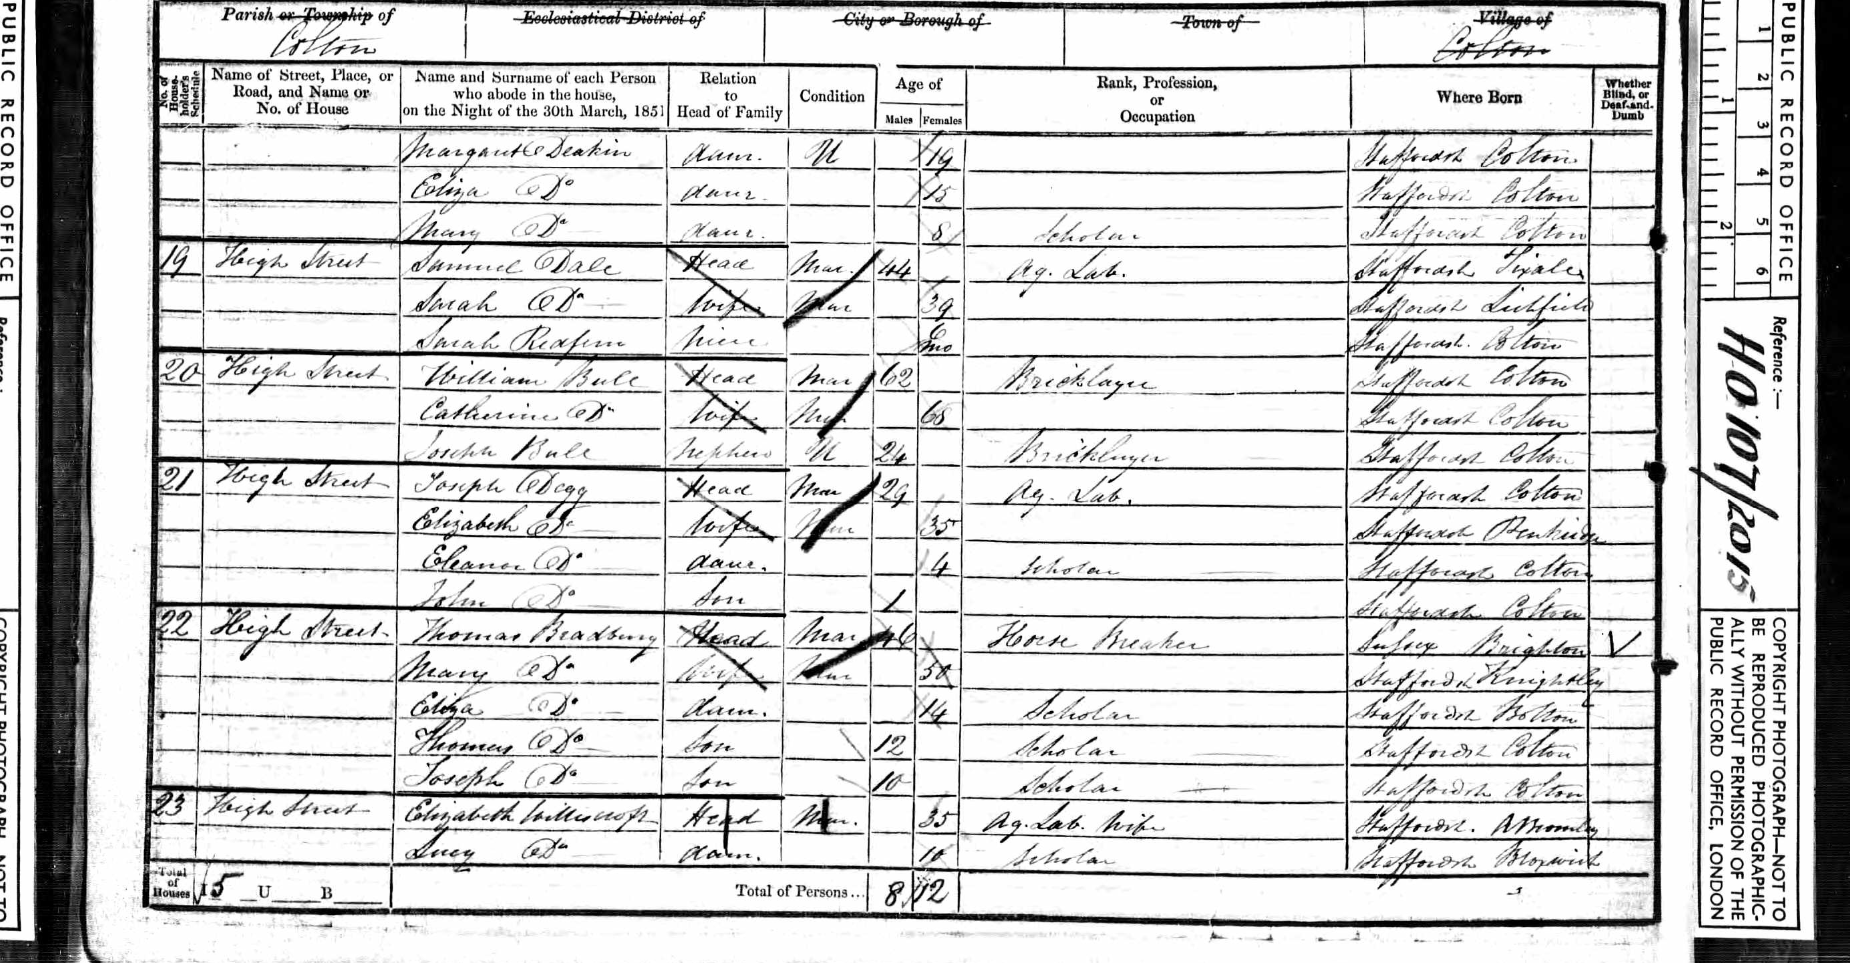 Parish or Township of
Colton
Ecclesiastical District of
City or Borough of
Town of
Village of
Colton
No. of House-holder's Schedule
Name of Street, Place, or Road, and Name or No. of House
Name and Surname of each Person who abode in the house, on the Night of the 30th March, 1851
Relation to Head of Family
Condition
Age of
Males Females
Rank, Profession, or Occupation
Where Born
Whether Blind, or Deaf-and-Dumb
Margaret Deakin daur. U 19 Staffordsh Colton
Eliza Do daur. 15 Staffordsh Colton
Mary Do daur. 8 Scholar Staffordsh Colton
19 High Street Samuel Dale Head Mar. 44 Ag. Lab. Staffordsh Tixale
Sarah Do Wife Mar 39 Staffordsh Lichfield
Sarah Redfern Niece 6 mo Staffordsh. Colton
20 High Street William Bull Head Mar 62 Bricklayer Staffordsh Colton
Catherine Do Wife Mar 68 Staffordsh Colton
Joseph Bull Nephew U 24 Bricklayer Staffordsh Colton
21 High Street Joseph Degg Head Mar 29 Ag. Lab. Staffordsh Colton
Elizabeth Do Wife Mar 35 Staffordsh
Eleanor Do daur. 4 Scholar Staffordsh Colton
John Do Son 1 Staffordsh Colton
22 High Street Thomas Bradbury Head Mar 46 Horse Breaker Sussex Brighton
Mary Do Wife Mar 50 Staffordsh Knightley
Eliza Do daur. 14 Scholar Staffordsh Colton
Thomas Do Son 12 Scholar Staffordsh Colton
Joseph Do Son 10 Scholar Staffordsh Colton
23 High Street Elizabeth Williscroft Head Mar. 35 Ag. Lab. Wife Staffordsh. A Bromley
Lucy Do daur. 10 Scholar Staffordsh Bloxwich
Total of Houses I 5 U B Total of Persons... 8 12
PUBLIC RECORD OFFICE
PUBLIC RECORD OFFICE
1 2 3 4 5 6
1 2
Reference :—
HO 107/2015
COPYRIGHT PHOTOGRAPH—NOT TO BE REPRODUCED PHOTOGRAPHICALLY WITHOUT PERMISSION OF THE PUBLIC RECORD OFFICE, LONDON